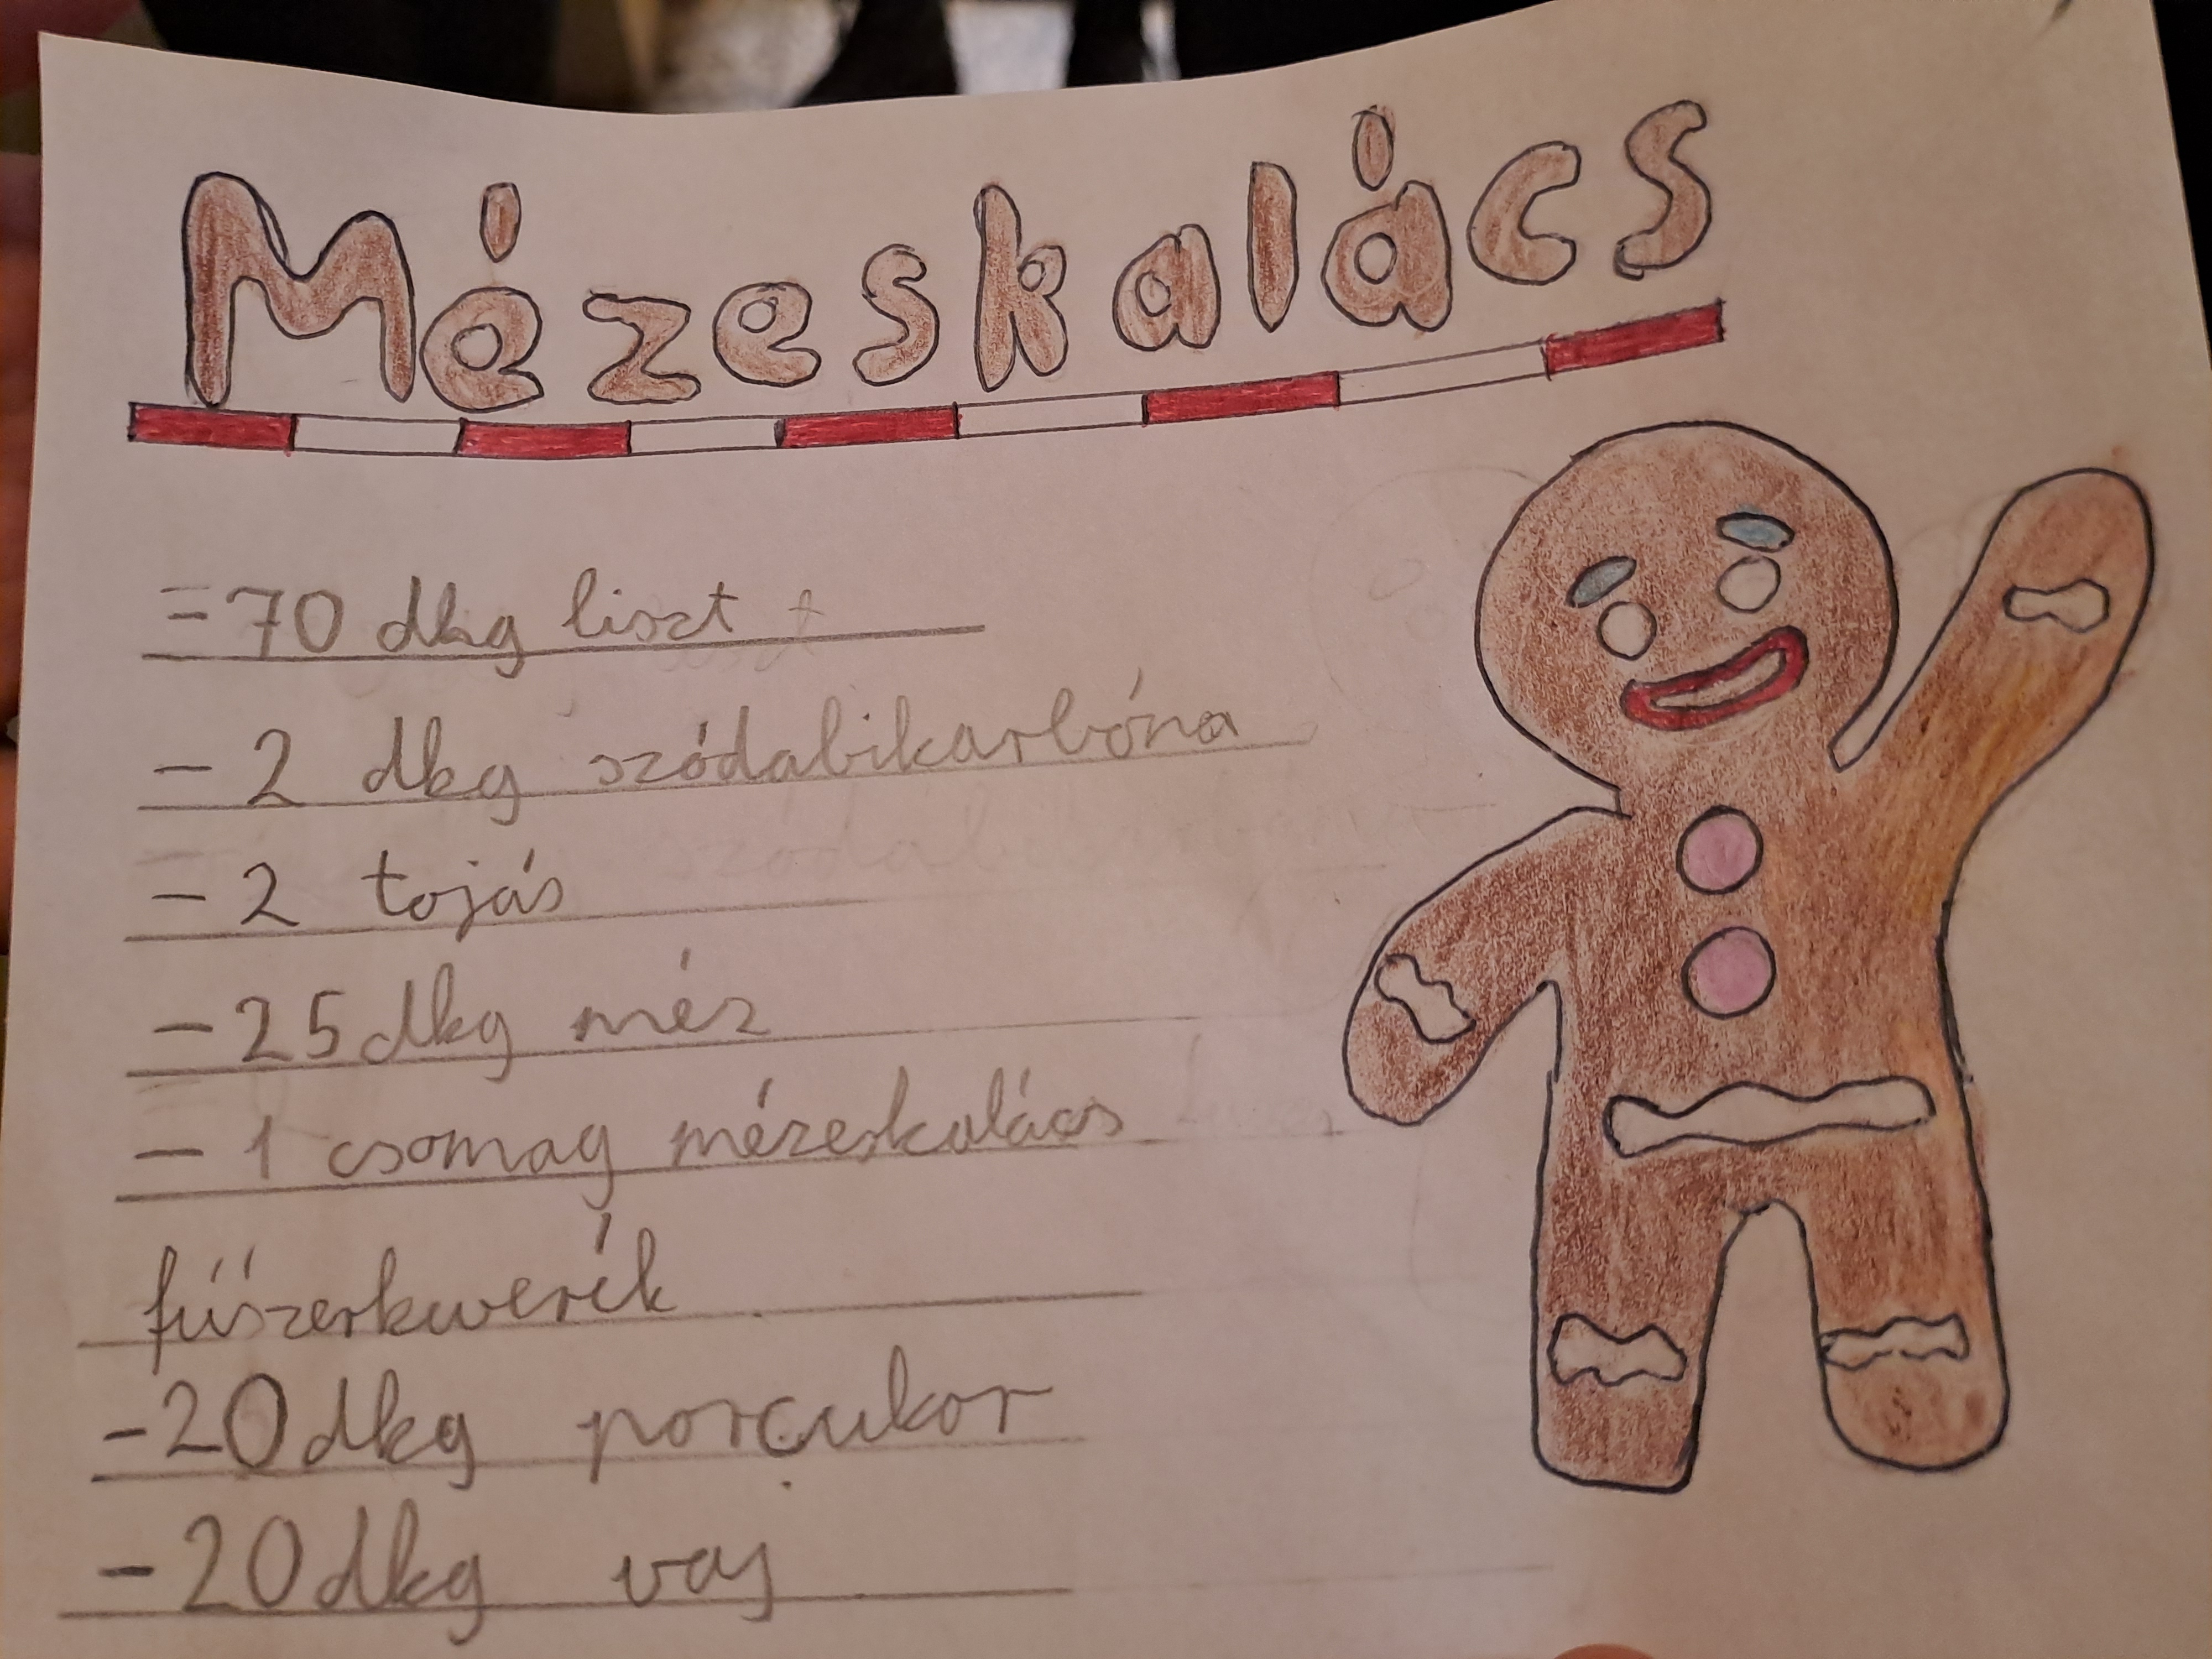 Mézeskalács
- 70 dkg liszt
- 2 dkg szódabikarbóna
- 2 tojás
- 25 dkg méz
- 1 csomag mézeskalács
fűszerkeverék
- 20 dkg porcukor
- 20 dkg vaj